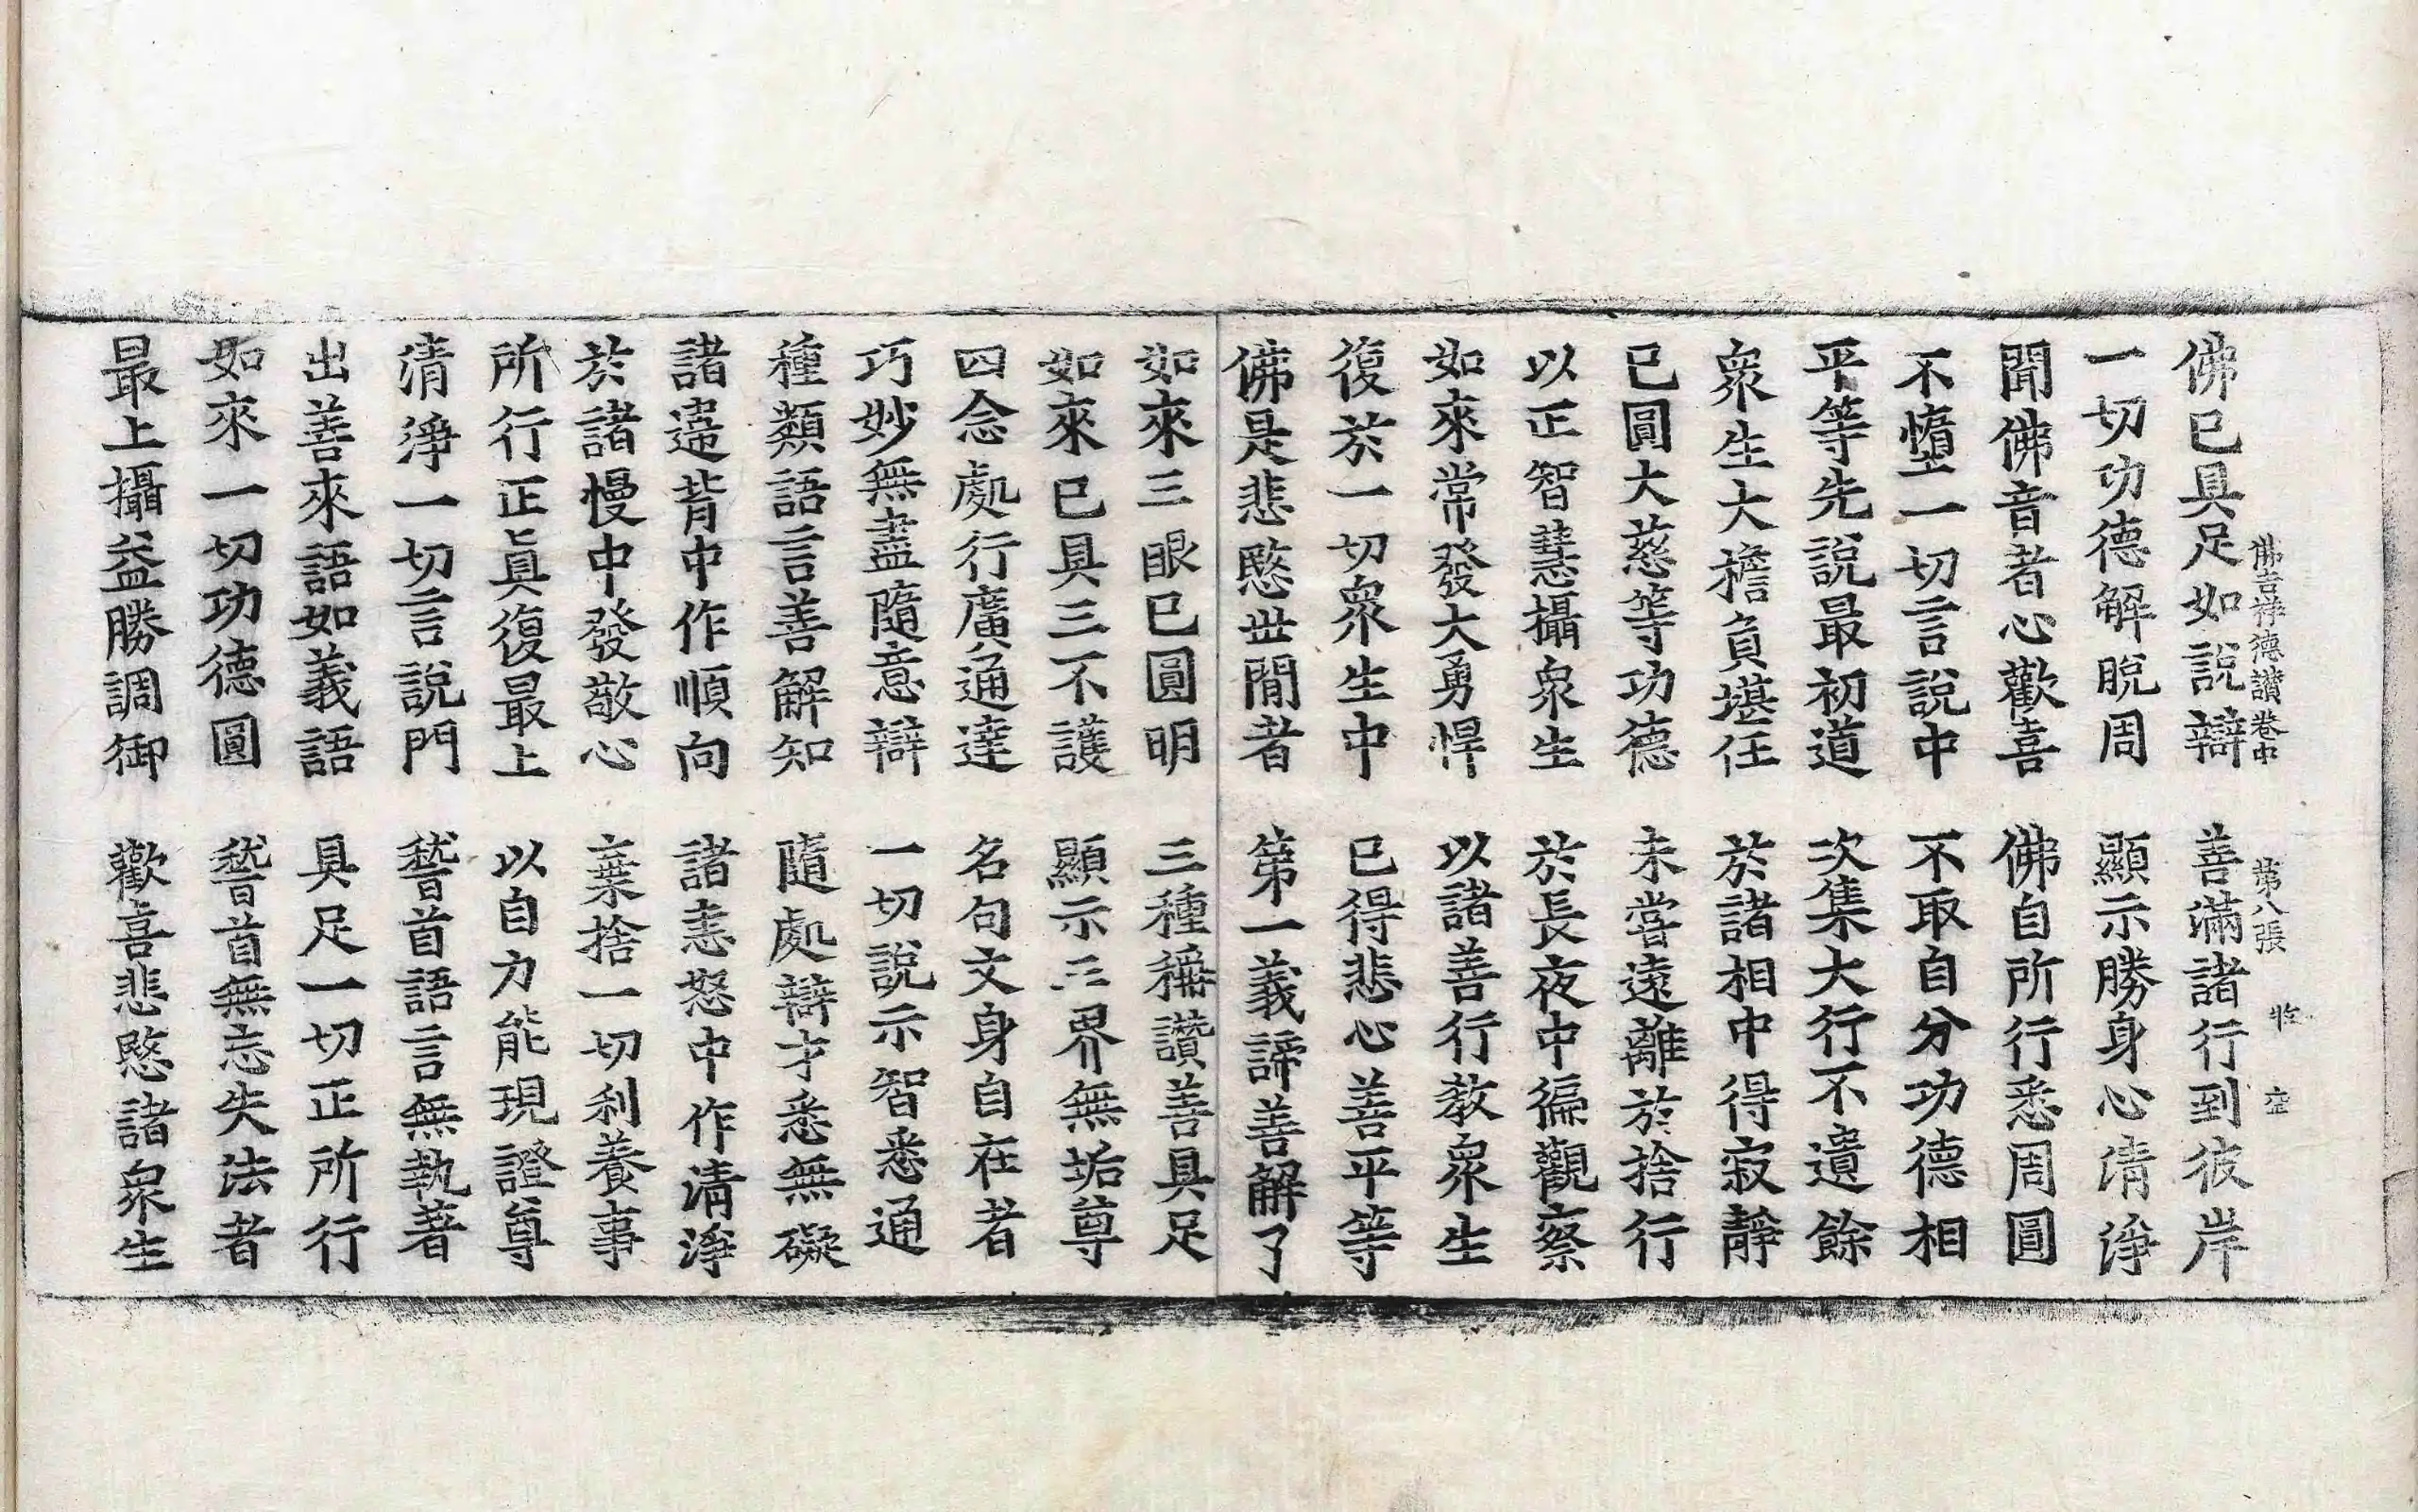 佛吉祥德讃卷中 第八張
佛已具足如說辯 善滿諸行到彼岸
一切功德解脫周 顯示勝身心清淨
聞佛音者心歡喜 佛自所行悉周圓
不墮一切言說中 不取自分功德相
平等先說最初道 次集大行不遺餘
衆生大擔負堪任 於諸相中得寂靜
已圓大慈等功德 未甞遠離於捨行
以正智慧攝衆生 於長夜中徧觀察
如來常發大勇悍 以諸善行敎衆生
復於一切衆生中 已得悲心善平等
佛是悲愍世閒者 第一義諦善解了
如來三眼已圓明 三種稱讚善具足
如來已具三不護 顯示三界無垢尊
四念處行廣通達 名句文身自在者
巧妙無盡隨意辯 一切說示智悉通
種類語言善解知 隨處辯才悉無礙
諸違背中作順向 諸恚怒中作清淨
於諸慢中發敬心 棄捨一切利養事
所行正眞復最上 以自力能現證尊
清淨一切言說門 稽首語言無執著
出善來語如義語 具足一切正所行
如來一切功德圓 稽首無忘失法者
最上攝益勝調御 歡喜悲愍諸衆生